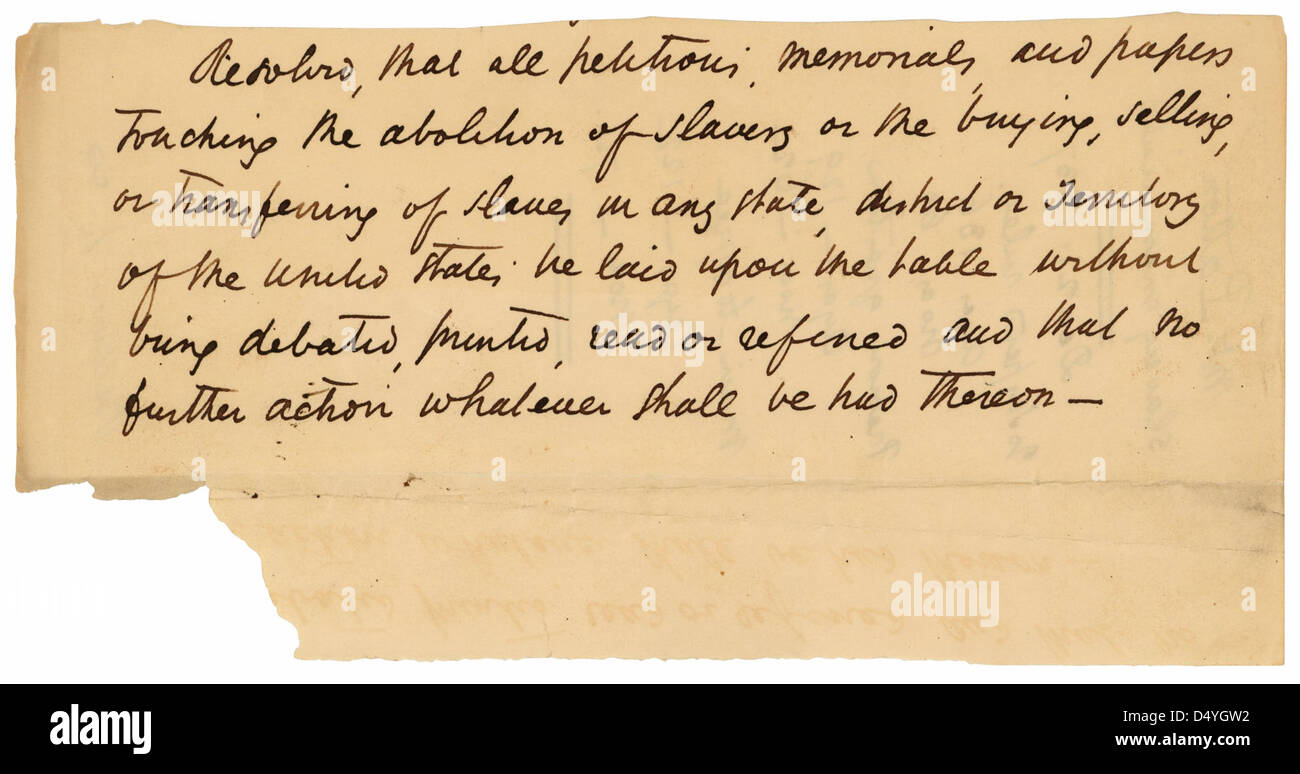 Resolved, that all petitions, memorials, and papers
touching the abolition of slavery or the buying, selling,
or transferring of slaves in any state, district or Territory
of the United States be laid upon the table without
being debated, printed, read or referred and that no
further action whatever shall be had thereon —
alamy
Image ID: D4YGW2
www.alamy.com